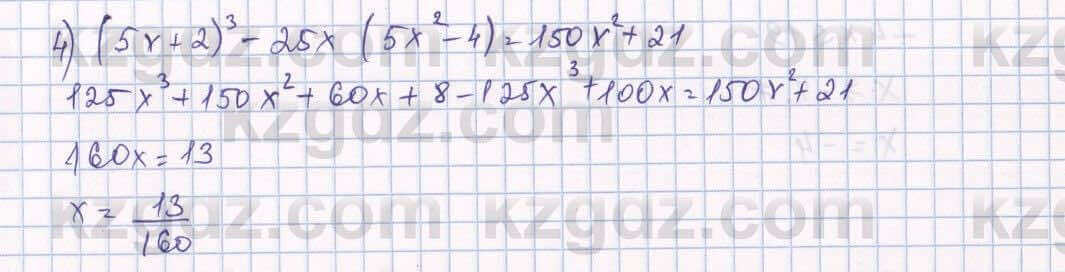 4) (5x+2)³ - 25x (5x²-4) = 150x² + 21
125x³ + 150x² + 60x + 8 - 125x³ + 100x = 150x² + 21
160x = 13
x = 13/160
kzgdz.com kzgdz.com
kzgdz.com
kzgdz.com kzgdz.com